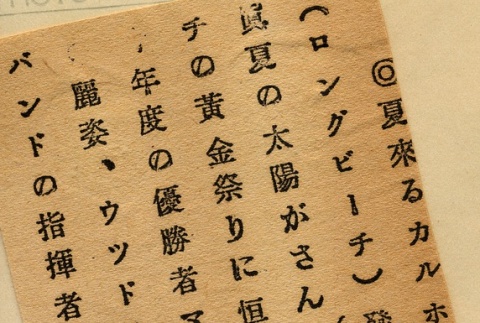 ◎夏來るカルホ
(ロングビーチ)發
眞夏の太陽がさん
チの黃金祭りに恒
年度の優勝者マ
麗姿、ウツド
バンドの指揮者